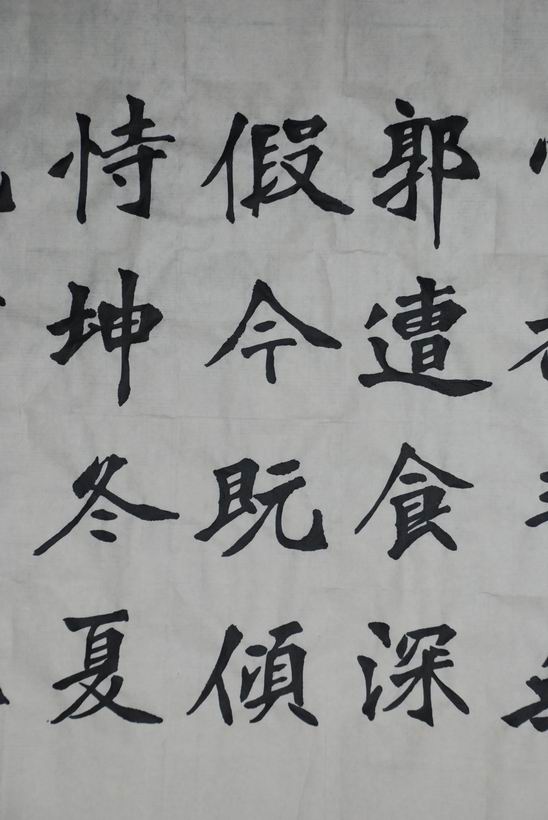 郭遭食深
假今既傾
恃坤冬夏